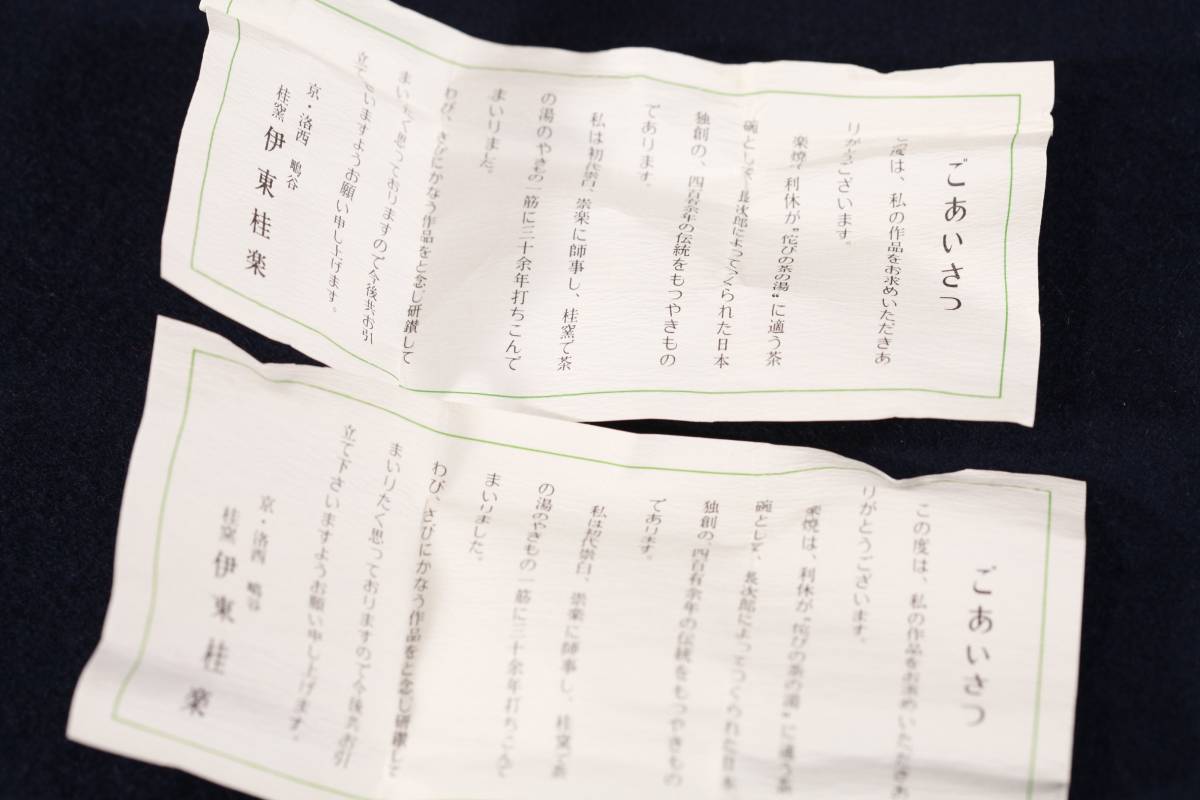 ごあいさつ
この度は、私の作品をお求めいただきあ
りがとうございます。
楽焼は、利休が〝佗びの茶の湯〟に適う茶
碗として、長次郎によってつくられた日本
独創の、四百有余年の伝統をもつやきもの
であります。
私は初代崇白、崇楽に師事し、桂窯で茶
の湯のやきもの一筋に三十余年打ちこんで
まいりました。
わび、さびにかなう作品をと念じ研鑚して
まいりたく思っておりますので今後共お引
立て下さいますようお願い申し上げます。
京・洛西 嶋谷
桂窯 伊東桂楽
ごあいさつ
この度は、私の作品をお求めいただきあ
りがとうございます。
楽焼は、利休が〝佗びの茶の湯〟に適う茶
碗として、長次郎によってつくられた日本
独創の、四百有余年の伝統をもつやきもの
であります。
私は初代崇白、崇楽に師事し、桂窯で茶
の湯のやきもの一筋に三十余年打ちこんで
まいりました。
わび、さびにかなう作品をと念じ研鑚して
まいりたく思っておりますので今後共お引
立て下さいますようお願い申し上げます。
京・洛西
桂窯 伊東桂楽